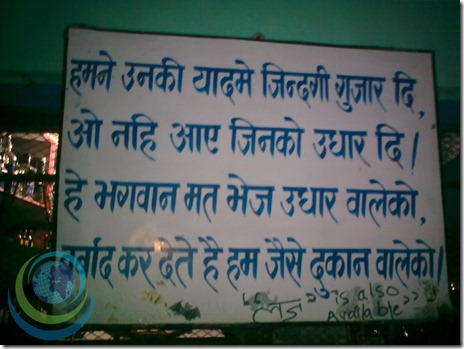 हमने उनकी यादमे जिन्दगी गुजार दि,
ओ नहि आए जिनको उधार दि।
हे भगवान मत भेज उधार वालेको,
कर देते है हम जैसे दुकान वालेको।
is also
Available >>